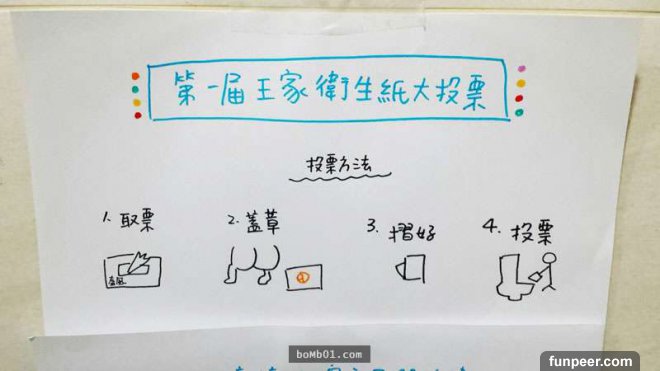 第一屆王家衛生紙大投票
投票方法
1. 取票
2. 蓋章
3. 摺好
4. 投票
boMb01.com
funpeer.com